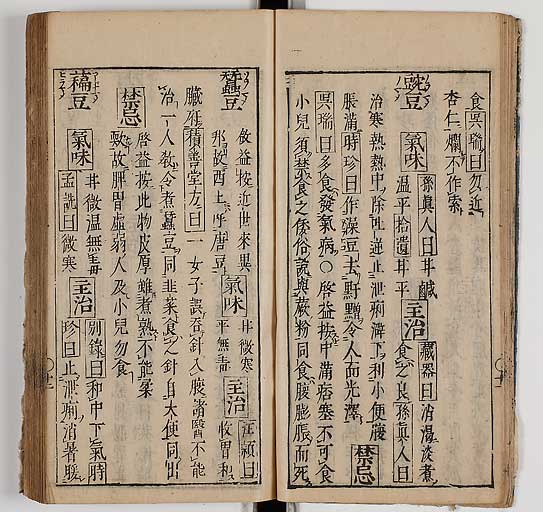 食吳瑞曰勿近
杏仁爛不作索
豌豆
氣味
孫眞人曰甘鹹
溫平拾遺甘平
主治
藏器曰消渴淡煮
食之良孫眞人曰
治寒熱熱中除吐逆止泄痢澼下利小便腹
脹滿時珍曰作澡豆去䵟黯令人面光澤
禁忌
吳瑞曰多食發氣病〇啓益按中滿痞塞不可食
小兒須禁食之倭俗說與蕨粉同食腹膨脹而死
蠶豆
啓益按近世來異
邦故西土呼唐豆
氣味
甘微寒
平無毒
主治
汪頴曰
快胃和
臟腑積善堂方曰一女子誤吞針入腹諸醫不能
治一人教令煮蠶豆同韭菜食之針自大便同出
禁忌
啓益按此物皮厚雖煮熟不能柔
軟故脾胃虛弱人及小兒勿食
藊豆
氣味
甘微溫無毒
孟詵曰微寒
主治
別錄曰和中下氣時
珍曰止泄痢消暑暖